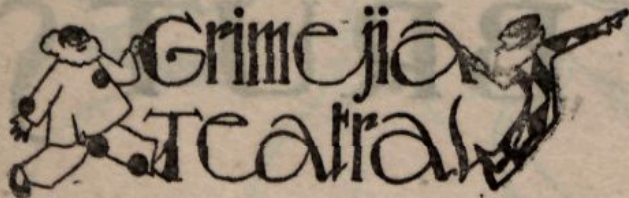 Grimejia
Teatral